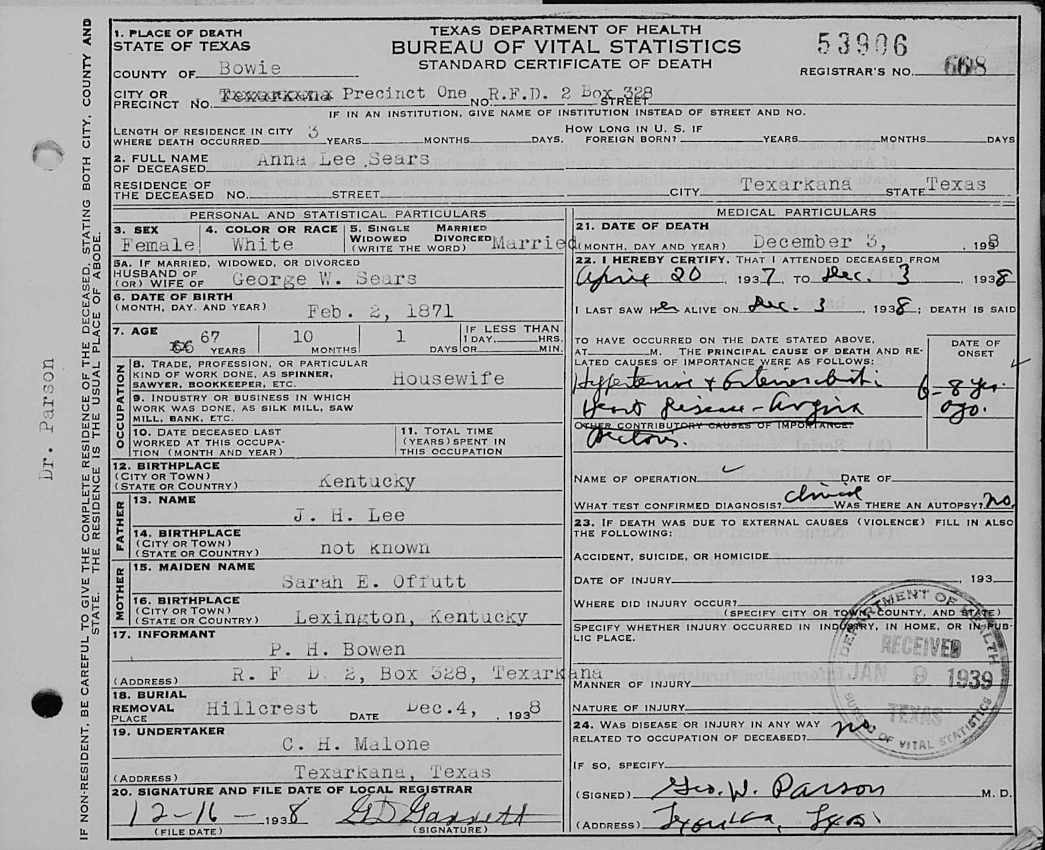 TEXAS DEPARTMENT OF HEALTH
BUREAU OF VITAL STATISTICS
STANDARD CERTIFICATE OF DEATH
53906
REGISTRAR'S NO. 668
1. PLACE OF DEATH
STATE OF TEXAS
COUNTY OF Bowie
CITY OR PRECINCT NO. Texarkana Precinct One NO. R.F.D. 2 Box 328 STREET
IF IN AN INSTITUTION, GIVE NAME OF INSTITUTION INSTEAD OF STREET AND NO.
LENGTH OF RESIDENCE IN CITY WHERE DEATH OCCURRED 3 YEARS MONTHS DAYS. HOW LONG IN U. S. IF FOREIGN BORN? YEARS MONTHS DAYS
2. FULL NAME OF DECEASED Anna Lee Sears
RESIDENCE OF THE DECEASED NO. STREET CITY Texarkana STATE Texas
PERSONAL AND STATISTICAL PARTICULARS
3. SEX Female
4. COLOR OR RACE White
5. SINGLE MARRIED WIDOWED DIVORCED (WRITE THE WORD) Married
5A. IF MARRIED, WIDOWED, OR DIVORCED
HUSBAND OF (OR) WIFE OF George W. Sears
6. DATE OF BIRTH (MONTH, DAY, AND YEAR) Feb. 2, 1871
7. AGE 66 67 YEARS 10 MONTHS 1 DAYS IF LESS THAN 1 DAY, HRS. OR MIN.
OCCUPATION
8. TRADE, PROFESSION, OR PARTICULAR
KIND OF WORK DONE, AS SPINNER,
SAWYER, BOOKKEEPER, ETC. Housewife
9. INDUSTRY OR BUSINESS IN WHICH
WORK WAS DONE, AS SILK MILL, SAW
MILL, BANK, ETC.
10. DATE DECEASED LAST
WORKED AT THIS OCCUPA-
TION (MONTH AND YEAR)
11. TOTAL TIME
(YEARS) SPENT IN
THIS OCCUPATION
12. BIRTHPLACE
(CITY OR TOWN)
(STATE OR COUNTRY) Kentucky
FATHER
13. NAME J. H. Lee
14. BIRTHPLACE
(CITY OR TOWN)
(STATE OR COUNTRY) not known
MOTHER
15. MAIDEN NAME Sarah E. Offutt
16. BIRTHPLACE
(CITY OR TOWN)
(STATE OR COUNTRY) Lexington, Kentucky
17. INFORMANT P. H. Bowen
(ADDRESS) R. F D. 2, Box 328, Texarkana
18. BURIAL
REMOVAL
PLACE Hillcrest DATE Dec.4, , 1938
19. UNDERTAKER C. H. Malone
(ADDRESS) Texarkana, Texas
20. SIGNATURE AND FILE DATE OF LOCAL REGISTRAR
12-16- 1938 GD Garrett
(FILE DATE) (SIGNATURE)
MEDICAL PARTICULARS
21. DATE OF DEATH
(MONTH, DAY AND YEAR) December 3, , 1938
22. I HEREBY CERTIFY, THAT I ATTENDED DECEASED FROM
April 20 , 1937, TO Dec. 3 , 1938
I LAST SAW HER ALIVE ON Dec. 3 , 1938; DEATH IS SAID
TO HAVE OCCURRED ON THE DATE STATED ABOVE,
AT M. THE PRINCIPAL CAUSE OF DEATH AND RE-
LATED CAUSES OF IMPORTANCE WERE AS FOLLOWS:
DATE OF ONSET
Hypertensive +
Heart Disease - Angina
6-8 yrs. ago.
OTHER CONTRIBUTORY CAUSES OF IMPORTANCE:
Pectoris.
NAME OF OPERATION DATE OF
WHAT TEST CONFIRMED DIAGNOSIS? Clinical WAS THERE AN AUTOPSY? No.
23. IF DEATH WAS DUE TO EXTERNAL CAUSES (VIOLENCE) FILL IN ALSO
THE FOLLOWING:
ACCIDENT, SUICIDE, OR HOMICIDE
DATE OF INJURY , 193
WHERE DID INJURY OCCUR?
(SPECIFY CITY OR TOWN, COUNTY, AND STATE)
SPECIFY WHETHER INJURY OCCURRED IN INDUSTRY, IN HOME, OR IN PUB-
LIC PLACE.
MANNER OF INJURY
NATURE OF INJURY
24. WAS DISEASE OR INJURY IN ANY WAY
RELATED TO OCCUPATION OF DECEASED? no
IF SO, SPECIFY
(SIGNED) Geo. W. Parson M. D.
(ADDRESS) Texarkana, Texas
DEPARTMENT OF HEALTH
RECEIVED
JAN 9 1939
TEXAS
BUREAU OF VITAL STATISTICS
IF NON-RESIDENT, BE CAREFUL TO GIVE THE COMPLETE RESIDENCE OF THE DECEASED, STATING BOTH CITY, COUNTY AND
STATE. THE RESIDENCE IS THE USUAL PLACE OF ABODE.
Dr. Parson